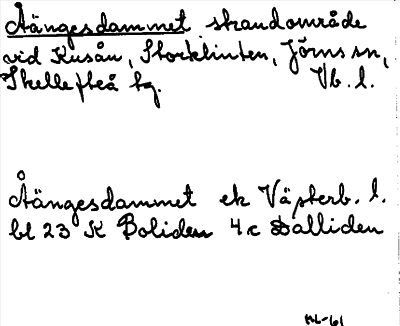 Åängesdammet strandområde
vid Kusån, Storklinten, Jörns sn,
Skellefteå tg. Vb. l.
Åängesdammet ek Västerb. l.
bl 23 K Boliden 4c Dalliden